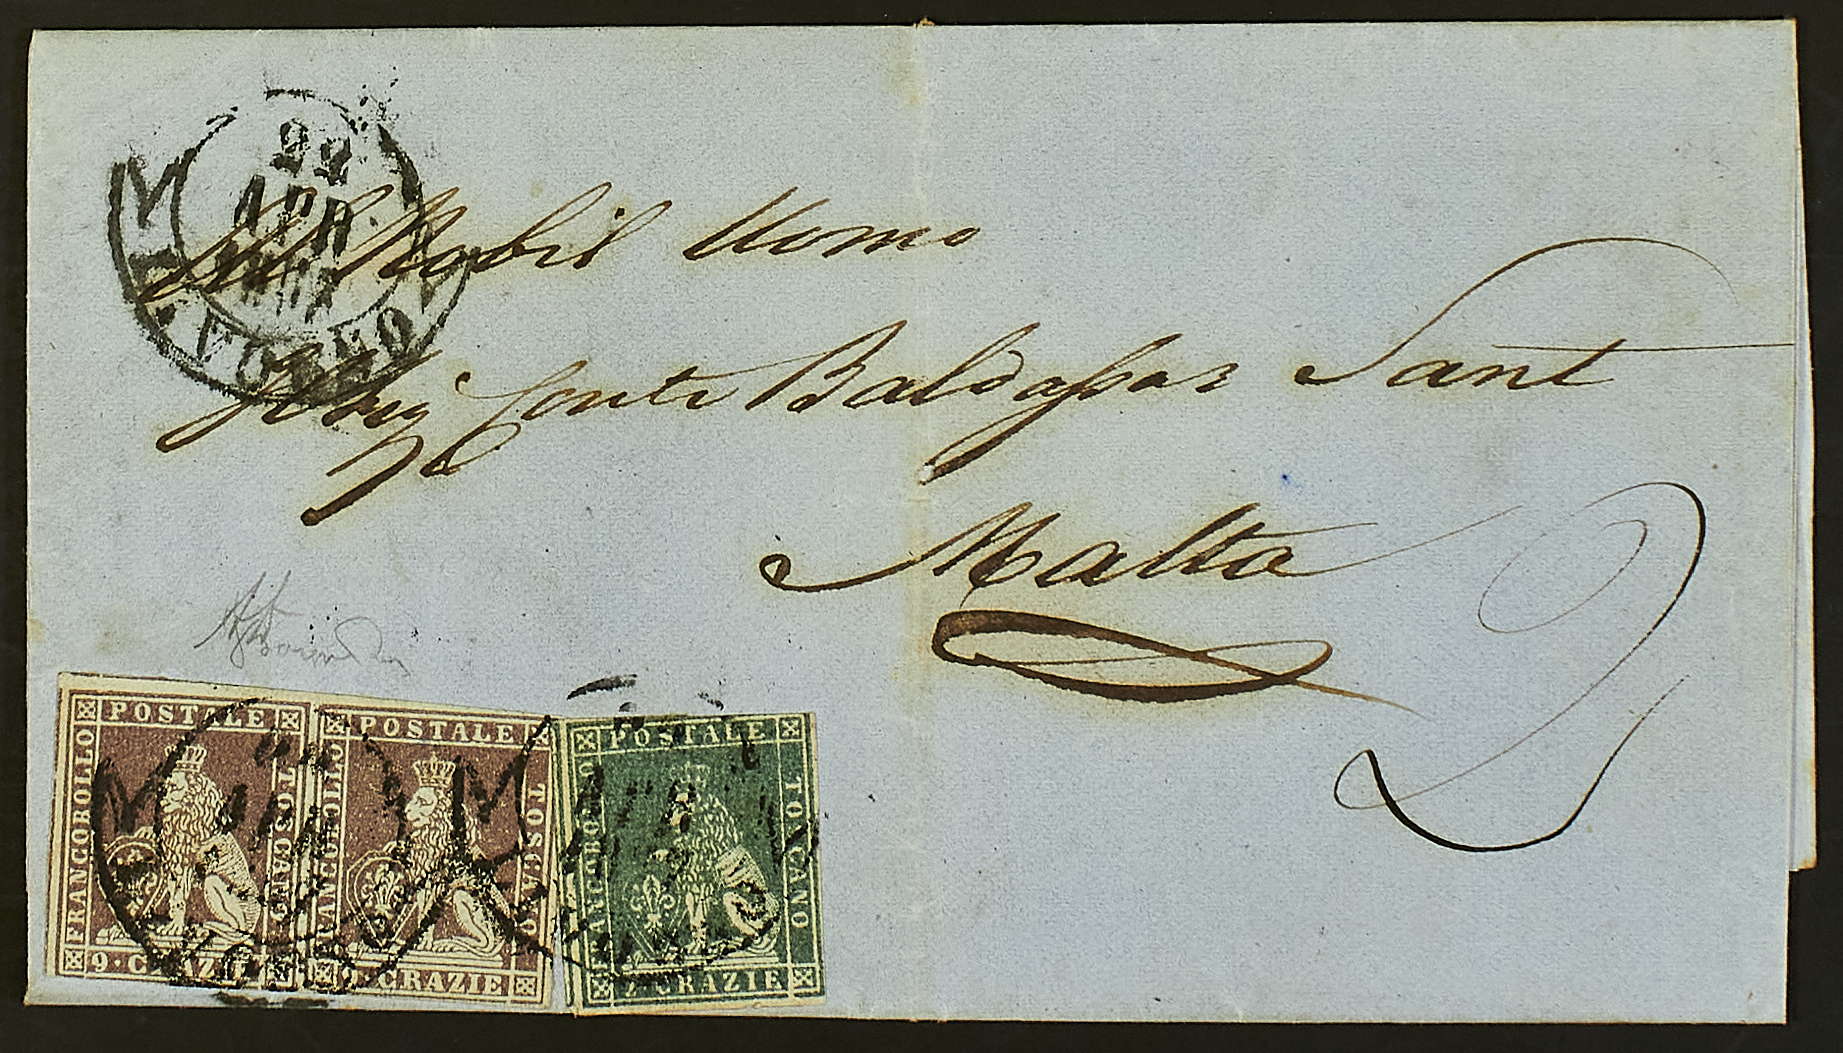 22
APR.
LIVORNO
Al Nobil Uomo
Conte Baldassar Sant
Malta
POSTALE
FRANCOBOLLO
TOSCANO
9·CRAZIE
POSTALE
FRANCOBOLLO
TOSCANO
9·CRAZIE
POSTALE
FRANCOBOLLO
TOSCANO
CRAZIE
APR